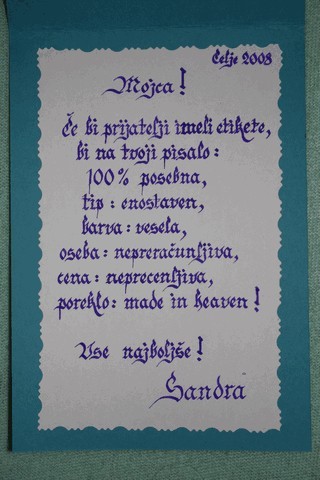 Celje 2008
Mojca!
Če bi prijatelji imeli etikete,
bi na tvoji pisalo:
100% posebna,
tip: enostaven,
barva: vesela,
oseba: nepreračunljiva,
cena: neprecenljiva,
poreklo: made in heaven!
Vse najboljše!
Sandra